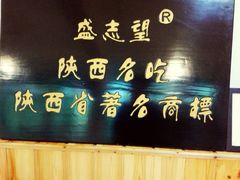 盛志望®
陝西名吃
陝西省著名商標